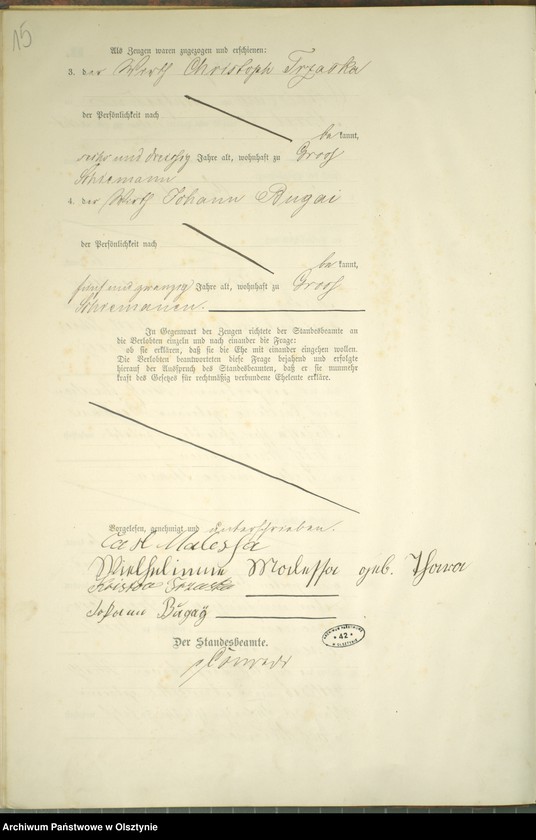 15
Als Zeugen waren zugezogen und erschienen:
3. der Wirth Christoph Trzaska
der Persönlichkeit nach
be kannt,
sechs und dreißig Jahre alt, wohnhaft zu Groß
Schiemann
4. der Wirth Johann Bugai
der Persönlichkeit nach
be kannt,
fünf und zwanzig Jahre alt, wohnhaft zu Groß
Schiemanen.
In Gegenwart der Zeugen richtete der Standesbeamte an
die Verlobten einzeln und nach einander die Frage:
ob sie erklären, daß sie die Ehe mit einander eingehen wollen.
Die Verlobten beantworteten diese Frage bejahend und erfolgte
hierauf der Ausspruch des Standesbeamten, daß er sie nunmehr
kraft des Gesetzes für rechtmäßig verbundene Eheleute erkläre.
Vorgelesen, genehmigt und unterschrieben.
Carl Malessa
Wielhelimine Malessa geb.
Trzaska
Johann Bugay
Der Standesbeamte.
ARCHIWUM PAŃSTWOWE
* 42 *
W OLSZTYNIE
Archiwum Państwowe w Olsztynie